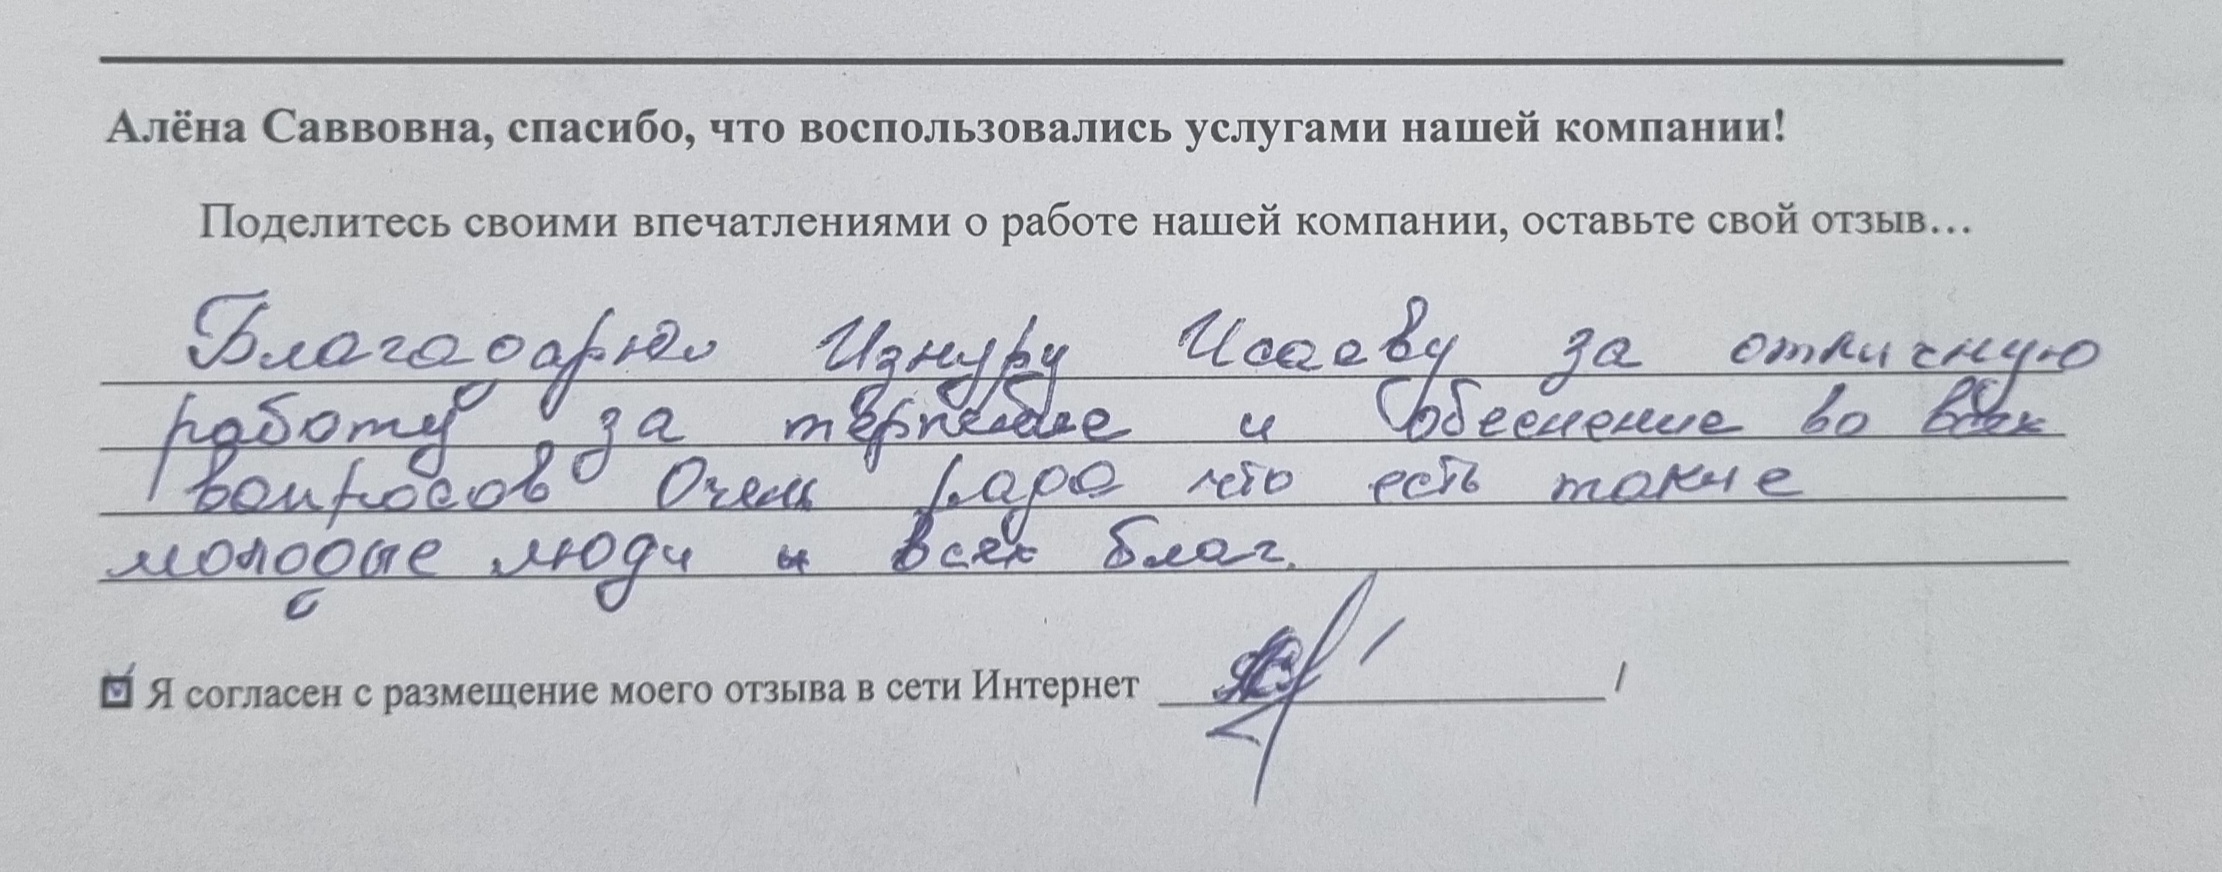 Алёна Саввовна, спасибо, что воспользовались услугами нашей компании!
Поделитесь своими впечатлениями о работе нашей компании, оставьте свой отзыв…
Благадарю Изнуру Исаеву за отличную
работу за терпение и обеснение во всех
вопросов Очень рада что есть такие
молодые люди и всех благ.
Я согласен с размещение моего отзыва в сети Интернет / /